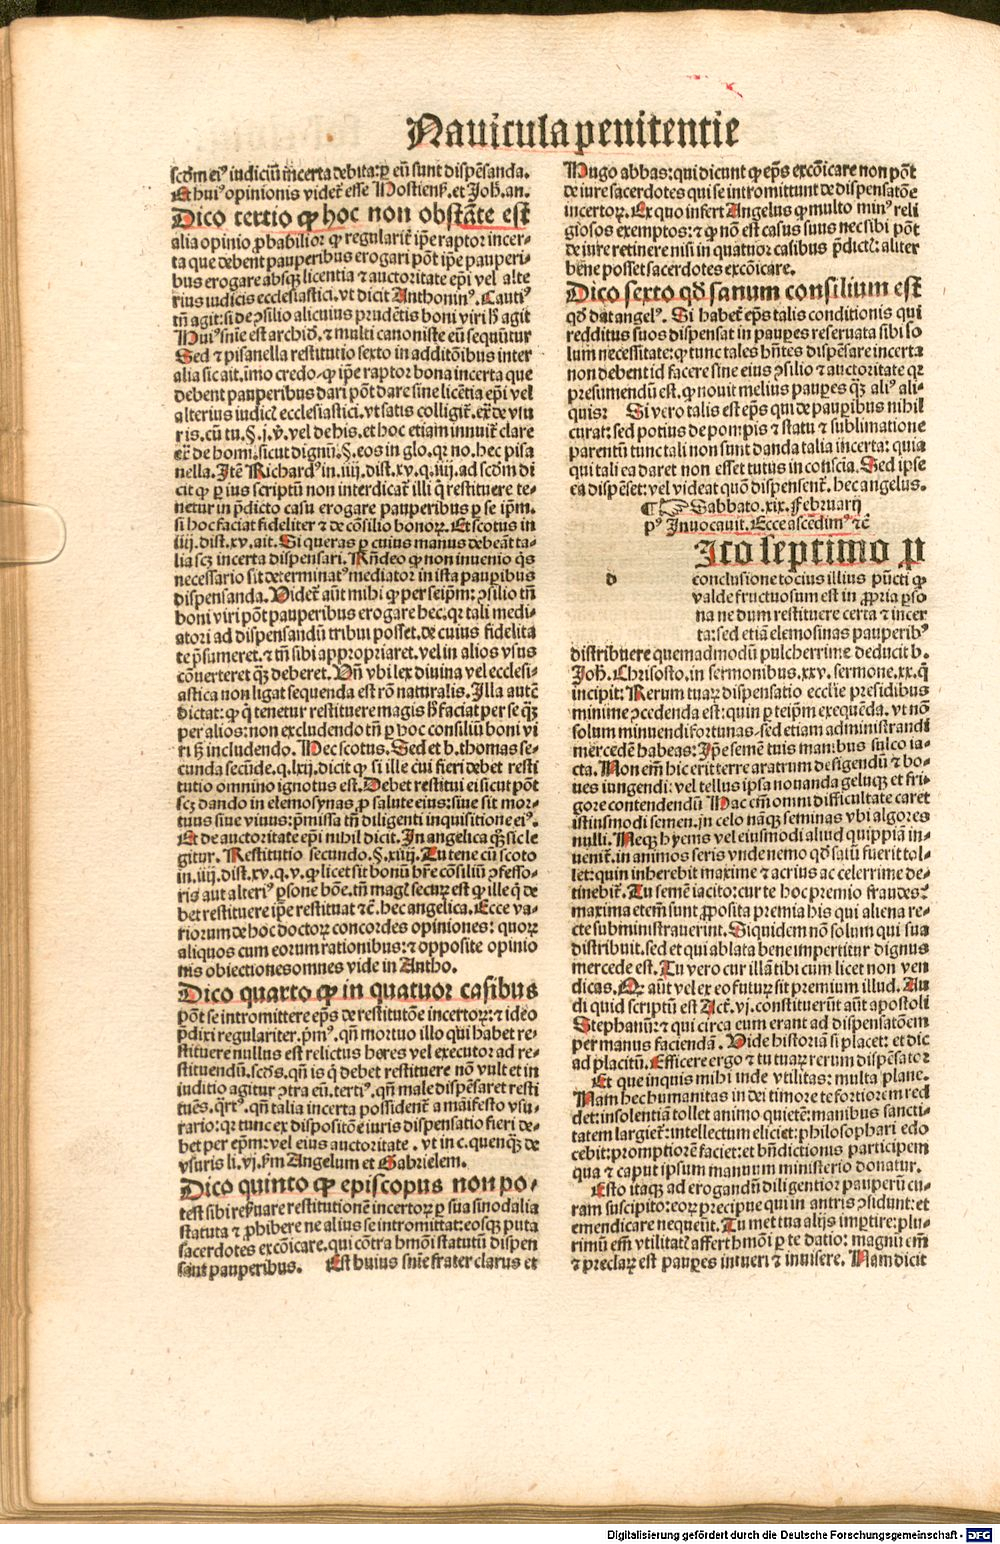 Nauicula penitentie
scďm ei⁹ iudiciū incerta debita: ꝑ eū sunt dispēsanda.
Et hui⁹ opinionis videt̄ esse Hostiens̄. et Joh̄. an.
Dico tertio ꝙ hoc non obstāte est
alia opinio ꝓbabilior ꝙ regularit̄ ip̄e raptor incer-
ta que debent pauperibus erogari pōt ip̄e pauperi-
bus erogare absqꝫ licentia ⁊ auctoritate ep̄i vel alte
rius iudicis ecclesiastici. vt dicit Anthonin⁹. Cauti⁹
tn̄ agit: si de ꝯsilio alicuius prudētis boni viri h̄ agit
Hui⁹ sn̄ie est archid̄. ⁊ multi canoniste eū sequūtur
Sed ⁊ pisanella restitutio sexto in additōibus inter
alia sic ait. imo credo ꝙ ip̄e raptor bona incerta que
debent pauperibus dari pōt dare sine licētia ep̄i vel
alterius iudicꝭ ecclesiastici. vt satis colligit̄. ex̄ de vsu
ris. cū tu. §. j. v̄. vel de his. et hoc etiam innuit̄ clare
ex̄ de homi. sicut dignū. §. eos in glo. qꝛ no. hec pisa
nella. Itē Richard⁹ in .iiij. dist. xv. q. iiij. ad scďm di
cit ꝙ ꝑ ius scriptū non interdicat̄ illi q̄ restituere te-
netur in p̄dicto casu erogare pauperibus ꝑ se ip̄m.
si hoc faciat fideliter ⁊ de cōsilio bonoꝝ. Et scotus in
iiij. dist. xv. ait. Si queras ꝑ cuius manus debeāt ta-
lia scꝫ incerta dispensari. Rn̄deo ꝙ non inuenio q̄s
necessario sit determinat⁹ mediator in ista pauꝑibus
dispensanda. Videt̄ aūt mihi ꝙ per seip̄m: ꝯsilio tn̄
boni viri pōt pauperibus erogare hec. qꝛ tali medi-
atori ad dispensandū tribui posset. de cuius fidelita
te p̄sumeret. ⁊ tn̄ sibi appropriaret. vel in alios vsus
cōuerteret qꝫ deberet. Vn̄ vbi lex diuina vel ecclesi-
astica non ligat sequenda est rō naturalis. Illa autē
dictat: ꝙ q̄ tenetur restituere magis h̄ faciat per se qꝫ
per alios: non excludendo tn̄ ꝑ hoc consiliū boni vi
ri sꝫ includendo. Hec scotus. Sed et b. thomas se-
cunda secūde. q. lxij. dicit ꝙ si ille cui fieri debet resti
tutio omnino ignotus est. Debet restitui ei sicut pōt
scꝫ dando in elemosynas ꝓ salute eius: siue sit mor-
tuus siue viuus: p̄missa tn̄ diligenti inquisitione ei⁹.
Et de auctoritate ep̄i nihil dicit. In angelica qꝫ sic le
gitur. Restitutio secundo. §. xiiij. Tu tene cū scoto
in .iiij. dist. xv. q. v. ꝙ licet sit bonū hr̄e cōsiliū ꝯfesso-
ris aut alteri⁹ ꝑsone bōe. tn̄ magꝭ secuꝝ est ꝙ ille q̄ de
bet restituere ip̄e restituat ⁊c̄. hec angelica. Ecce va-
riorum de hoc doctoꝝ concordes opiniones: quoꝝ
aliquos cum eorum rationibus: ⁊ opposite opinio
nis obiectiones omnes vide in Antho.
Dico quarto ꝙ in quatuor casibus
pōt se intromittere ep̄s de restitutōe incertoꝝ: ⁊ ideo
p̄dixi regulariter. p̄m⁹. qn̄ mortuo illo qui habet re-
stituere nullus est relictus hęres vel executor ad re-
stituendū. scďs. qn̄ is q̄ debet restituere nō vult et in
iuditio agitur ꝯtra eū. terti⁹. qn̄ male dispēsaret resti
tuēs. q̄rt⁹. qn̄ talia incerta possident̄ a māifesto vsu-
rario: qꝛ tunc ex dispositōe iuris dispensatio fieri de-
bet per ep̄m: vel eius auctoritate. vt in c. quenqꝫ de
vsuris li. vj. ẜm Angelum et Gabrielem.
Dico quinto ꝙ episcopus non po-
test sibi reẜuare restitutionē incertoꝝ ꝑ sua sinodalia
statuta ⁊ ꝓhibere ne alius se intromittat: eosqꝫ puta
sacerdotes excōicare. qui cōtra hmōi statutū dispen
sant pauperibus. Est huius sn̄ie frater clarus et
Hugo abbas: qui dicunt ꝙ ep̄s excōicare non pōt
de iure sacerdotes qui se intromittunt de dispensatōe
incertoꝝ. Ex quo infert Angelus ꝙ multo min⁹ reli
giosos exemptos: ⁊ ꝙ nō est casus suus nec sibi pōt
de iure retinere nisi in quatuor casibus p̄dictꝭ: aliter
bene posset sacerdotes excōicare.
Dico sexto qď sanum consilium est
qď dat angel⁹. Si habet̄ ep̄s talis conditionis qui
redditus suos dispensat in pauꝑes reseruata sibi so
lum necessitate: ꝙ tunc tales hn̄tes dispēsare incerta
non debent id facere sine eius ꝯsilio ⁊ auctoritate qꝛ
presumendū est. ꝙ nouit melius pauꝑes qꝫ ali⁹ ali-
quis: Si vero talis est ep̄s qui de pauꝑibus nihil
curat: sed potius de pompis ⁊ statu ⁊ sublimatione
parentū tunc tali non sunt danda talia incerta: quia
qui tali ea daret non esset tutus in conscīa. Sed ipse
ea dispēset: vel videat quō dispensent̄. hec angelus.
¶ ☞ Sabbato. xix. Februarij
p⁹ Inuocauit. Ecce ascēdim⁹ ⁊c̄
Ico septimo ꝓ
d
conclusione tocius illius pūcti ꝙ
valde fructuosum est in ꝓpria ꝑso
na ne dum restituere certa ⁊ incer
ta: sed etiā elemosinas pauperib⁹
distribuere quemadmodū pulcherrime deducit b.
Joh̄. Chrisosto. in sermonibus. xxv. sermone. xx. q̄
incipit: Rerum tuaꝝ dispensatio eccl̄ie presidibus
minime ꝯcedenda est: quin ꝑ teip̄m exequēda. vt nō
solum minuendi fortunas: sed etiam administrandi
mercedē habeas: Ip̄e semē tuis manibus sulco ia-
cta. Non em̄ hic erit terre aratrum desigendū ⁊ bo-
ues iungendi: vel tellus ipsa nouanda geluqꝫ et fri-
gore contendendū Hac em̄ omni difficultate caret
istiusmodi semen. in celo nāqꝫ seminas vbi algores
nulli. Neqꝫ hyems vel eiusmodi aliud quippiā in-
uenit̄. in animos seris vnde nemo qď satū fuerit tol-
let: quin inherebit maxime ⁊ acrius ac celerrime de-
tinebit̄. Tu semē iacito: cur te hoc premio fraudes?
maxima etem̄ sunt ꝓposita premia his qui aliena re-
cte subministrauerint. Siquidem nō solum qui sua
distribuit. sed et qui ablata bene impertitur dignus
mercede est. Tu vero cur illā tibi cum licet non ven
dicas. Qꝛ aūt vel ex eo futuꝝ sit premium illud. Au
di quid scriptū est Act̄. vj. constituerūt aūt apostoli
Stephanū: ⁊ qui circa eum erant ad dispensatōem
per manus faciendā. Vide historiā si placet: et dic
ad placitū. Efficere ergo ⁊ tu tuaꝝ rerum dispēsator
Et que inquis mihi inde vtilitas: multa plane.
Nam hec humanitas in dei timore te fortiorem red
det: insolentiā tollet animo quietē: manibus sancti-
tatem largiet̄: intellectum eliciet: philosophari edo
cebit: promptiorē faciet: et bn̄dictionis participem
qua ⁊ caput ipsum manuum ministerio donatur.
Esto itaqꝫ ad erogandū diligentior pauperū cu-
ram suscipito: eoꝝ precipue qui in antris ꝯsidunt: et
emendicare nequeūt. Tu met tua alijs imꝑtire: plu-
rimū em̄ vtilitatꝭ affert hmōi ꝑ te datio: magnū em̄
⁊ preclaꝝ est pauꝑes intueri ⁊ inuisere. Nam dicit
Digitalisierung gefördert durch die Deutsche Forschungsgemeinschaft - DFG